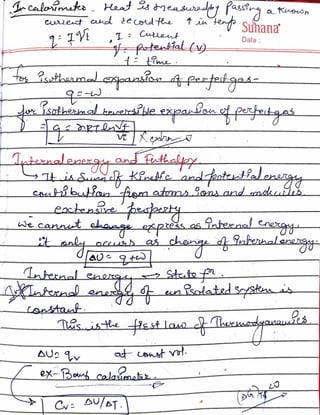 In calorimeter. Heat is measured by Passing a known
current and record the ↑ in temp
Suhana
Date :
q = IVt , I = Current
V = potential (V)
t = time.
for isothermal expansion of perfect gas -
q = -w
for isothermal reversible expansion of perfect gas
q = nRT ln Vf/Vi
Internal energy and Enthalpy.
→ It is Sum of Kinetic and potential energy
contribution from atoms, ions and molecules
extensive property
we cannot change express as Internal energy.
it only occurs as change of Internal energy.
ΔU = q+w
Internal energy → State fn.
Internal energy of an isolated system is
constant.
This is the first law of Thermodynamics.
ΔU = qv at const vol.
ex - Bomb calorimeter.
→ Cv = ΔU/ΔT.